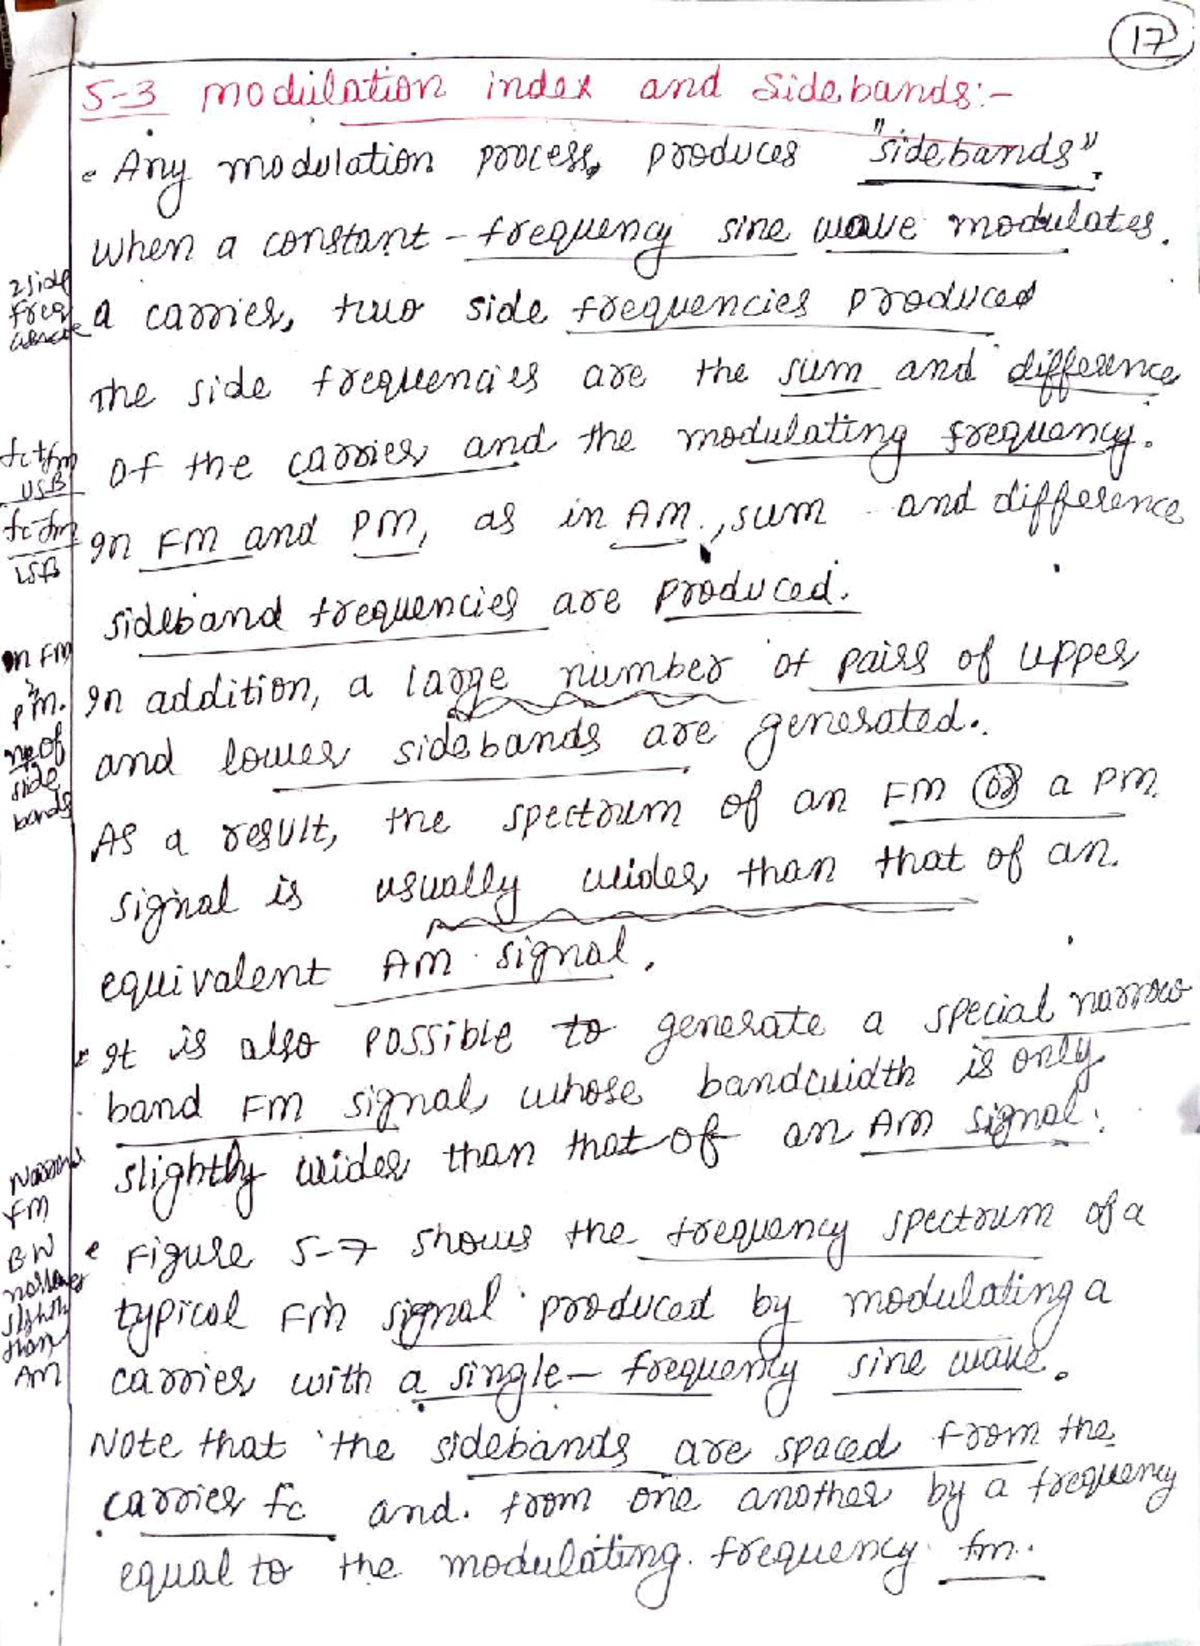 17
5-3 Modulation index and Sidebands:-
Any modulation process, produces "sidebands".
When a constant - frequency sine wave modulates.
2 side
freq
a carrier, two side frequencies produced
The side frequencies are the sum and difference
fc+fm
USB
of the carrier and the modulating frequency.
fc-fm
LSB
In FM and PM, as in AM., sum and difference
sideband frequencies are produced.
In FM
PM.
no of
side
bands
In addition, a large number of pairs of upper
and lower sidebands are generated.
As a result, the spectrum of an FM or a PM.
signal is usually wider than that of an.
equivalent AM signal.
It is also possible to generate a special narrow
band FM signal whose bandwidth is only
slightly wider than that of an AM signal.
Narrow
FM
BW
slightly
than
AM
Figure 5-7 shows the frequency spectrum of a
typical FM signal produced by modulating a
carrier with a single - frequency sine wave.
Note that the sidebands are spaced from the
carrier fc and. from one another by a frequency
equal to the modulating frequency fm.